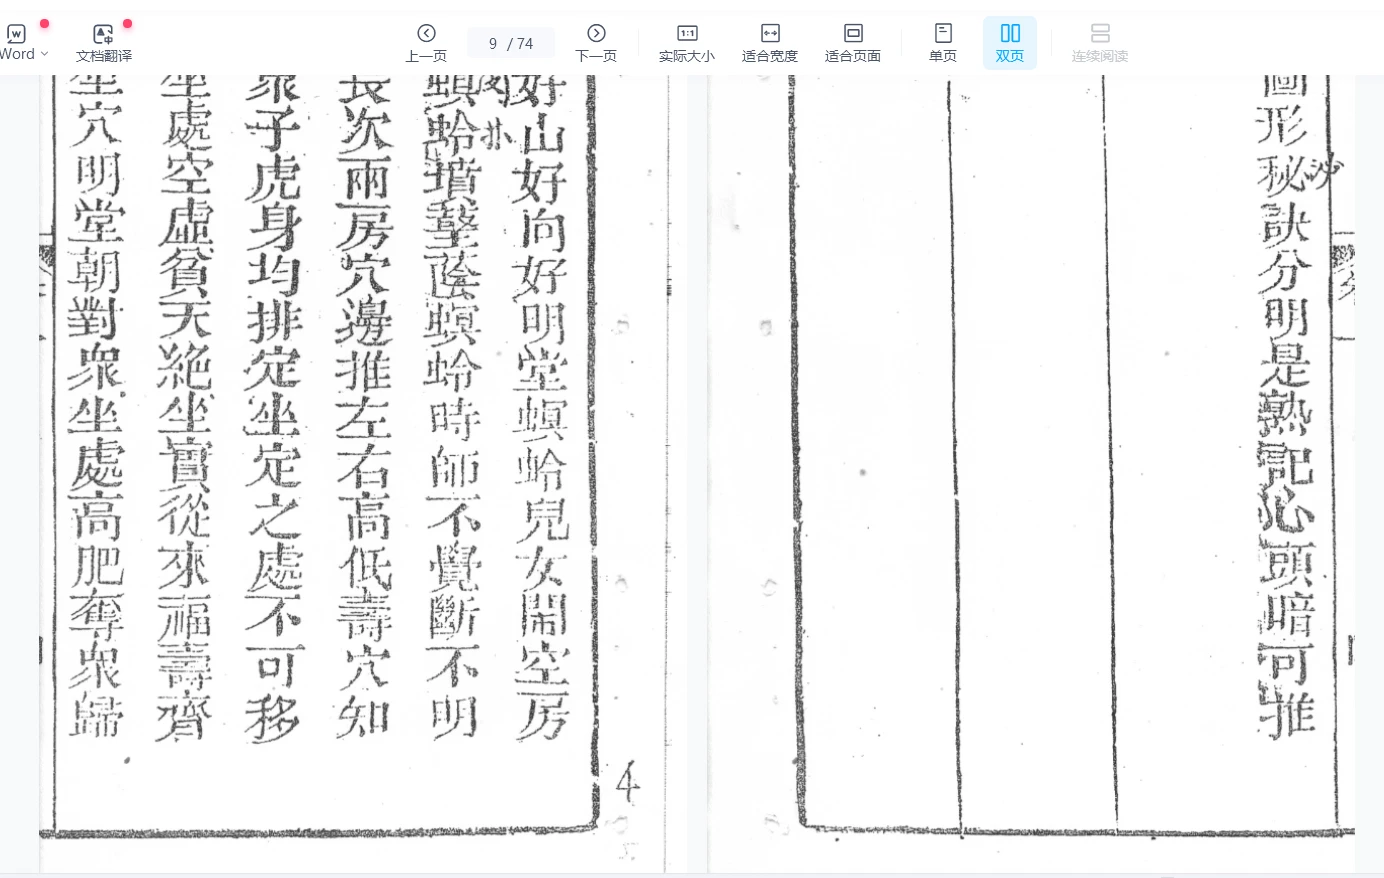 Word
文档翻译
上一页
9 / 74
下一页
实际大小
适合宽度
适合页面
单页
双页
连续阅读
圖形秘訣分明是熟記心頭暗可推
好山好向好明堂螟蛉兒女閙空房
螟蛉墳塋蔭螟蛉時師不覺斷不明
長次兩房穴邊推左右高低壽穴知
衆子虎身均排定坐定之處不可移
坐處空虛貧夭絶坐實從來福壽齊
坐穴明堂朝對衆坐處高肥奪衆歸
4